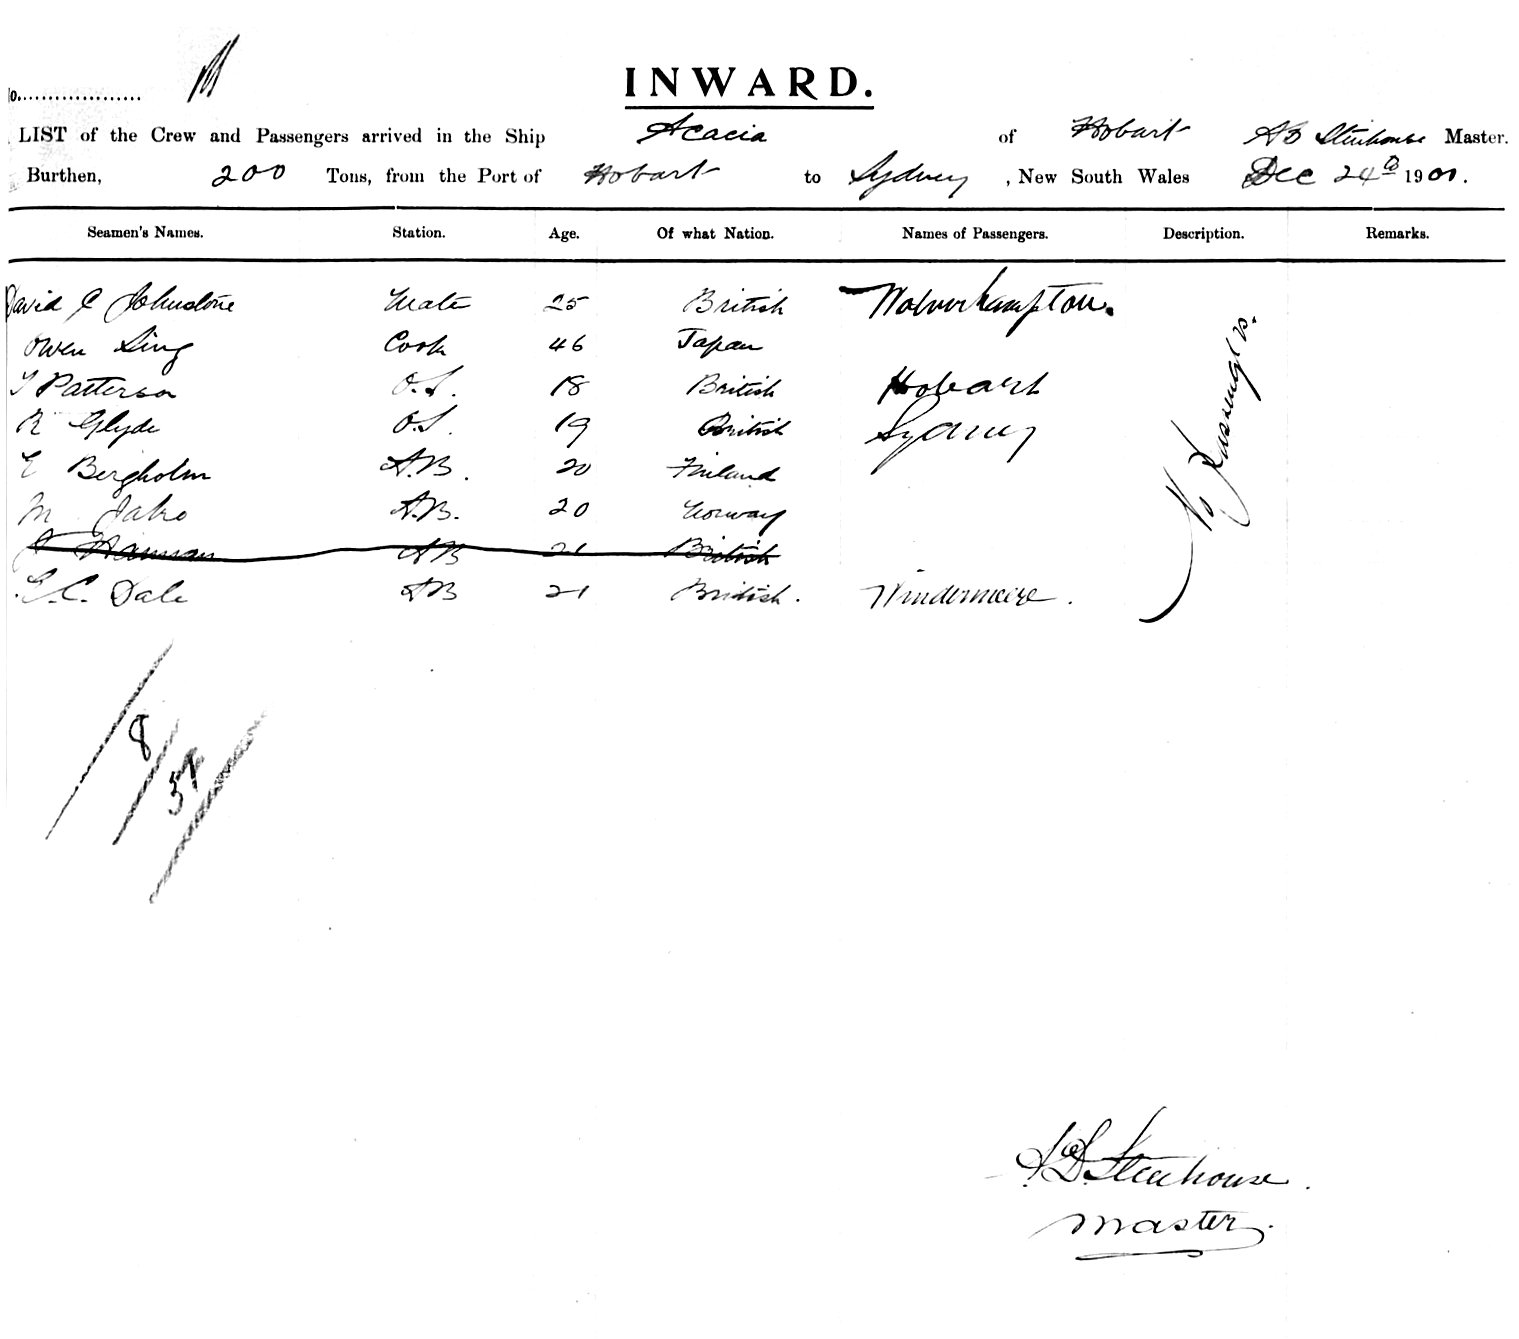 INWARD.
o..................
LIST of the Crew and Passengers arrived in the Ship Acacia of Hobart A D Stenhouse Master.
Burthen, 200 Tons, from the Port of Hobart to Sydney, New South Wales Dec 24th 1901.
Seamen's Names. Station. Age. Of what Nation. Names of Passengers. Description. Remarks.
David C Johnstone Mate 25 British Wolverhampton.
Owen Sing Cook 46 Japan
T Patterson O.S. 18 British Hobart
R Glyde O.S. 19 British Sydney
E Bergholm A.B. 20 Finland
M A.B. 20 Norway
Hannan AB 21 British
E.C. Dale AB 21 British. Windermeere.
No Passengers.
8
A.D. Stenhouse.
Master.